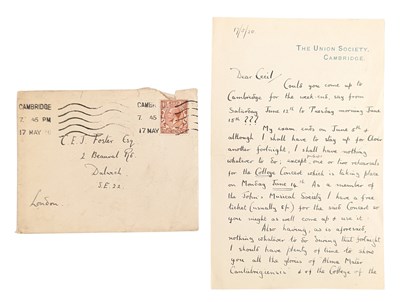 CAMBRIDGE
45 PM
17 MAY
CAMB
45
17 MAY
C.E.J. Foster Esq
2 Road
Dulwich
S.E.22.
London
THE UNION SOCIETY,
CAMBRIDGE.
Dear Cecil,
Could you come up to
Cambridge for the week-end, say from
Saturday June 12th to Tuesday morning June
15th ???
My exam ends on June 5th &
although I shall have to stay up for above
another fortnight, I shall have nothing
whatever to do, except one or two rehearsals
for the College Concert which is taking place
on Monday June 14th. As a member of
the John's Musical Society I have a free
ticket (usually 5/-) for the said Concert so
you might as well come up & use it.
Also having, as is aforesaid,
nothing whatever to do during that fortnight
I should have plenty of time to show
you all the glories of Alma Mater
Cantabrigiensis & of the College of the